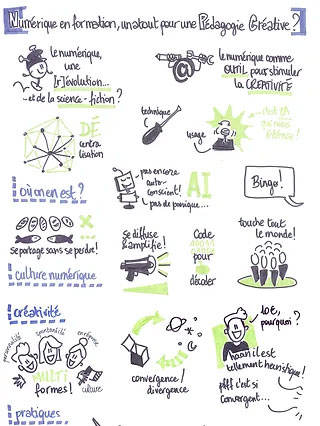 Numérique en formation, un atout pour une Pédagogie Créative ?
le numérique,
une
(R)évolution...
...et de la science-fiction ?
le numérique comme
OUTIL pour stimuler
la CREATIVITÉ
technique
usage
DÉ
centra
lisation
où on en est ?
pas encore
auto-
conscient!
pas de panique...
AI
Bingo!
Se partage sans se perdre!
Se diffuse
& amplifie!
Code
pour
décoler
touche tout
le monde!
culture numérique
créativité
personnalité
spontanéité
MULTI
formes!
culture
convergence /
divergence
pourquoi ?
haan il est
tellement heuristique!
pfff c'est si
convergent...
pratiques